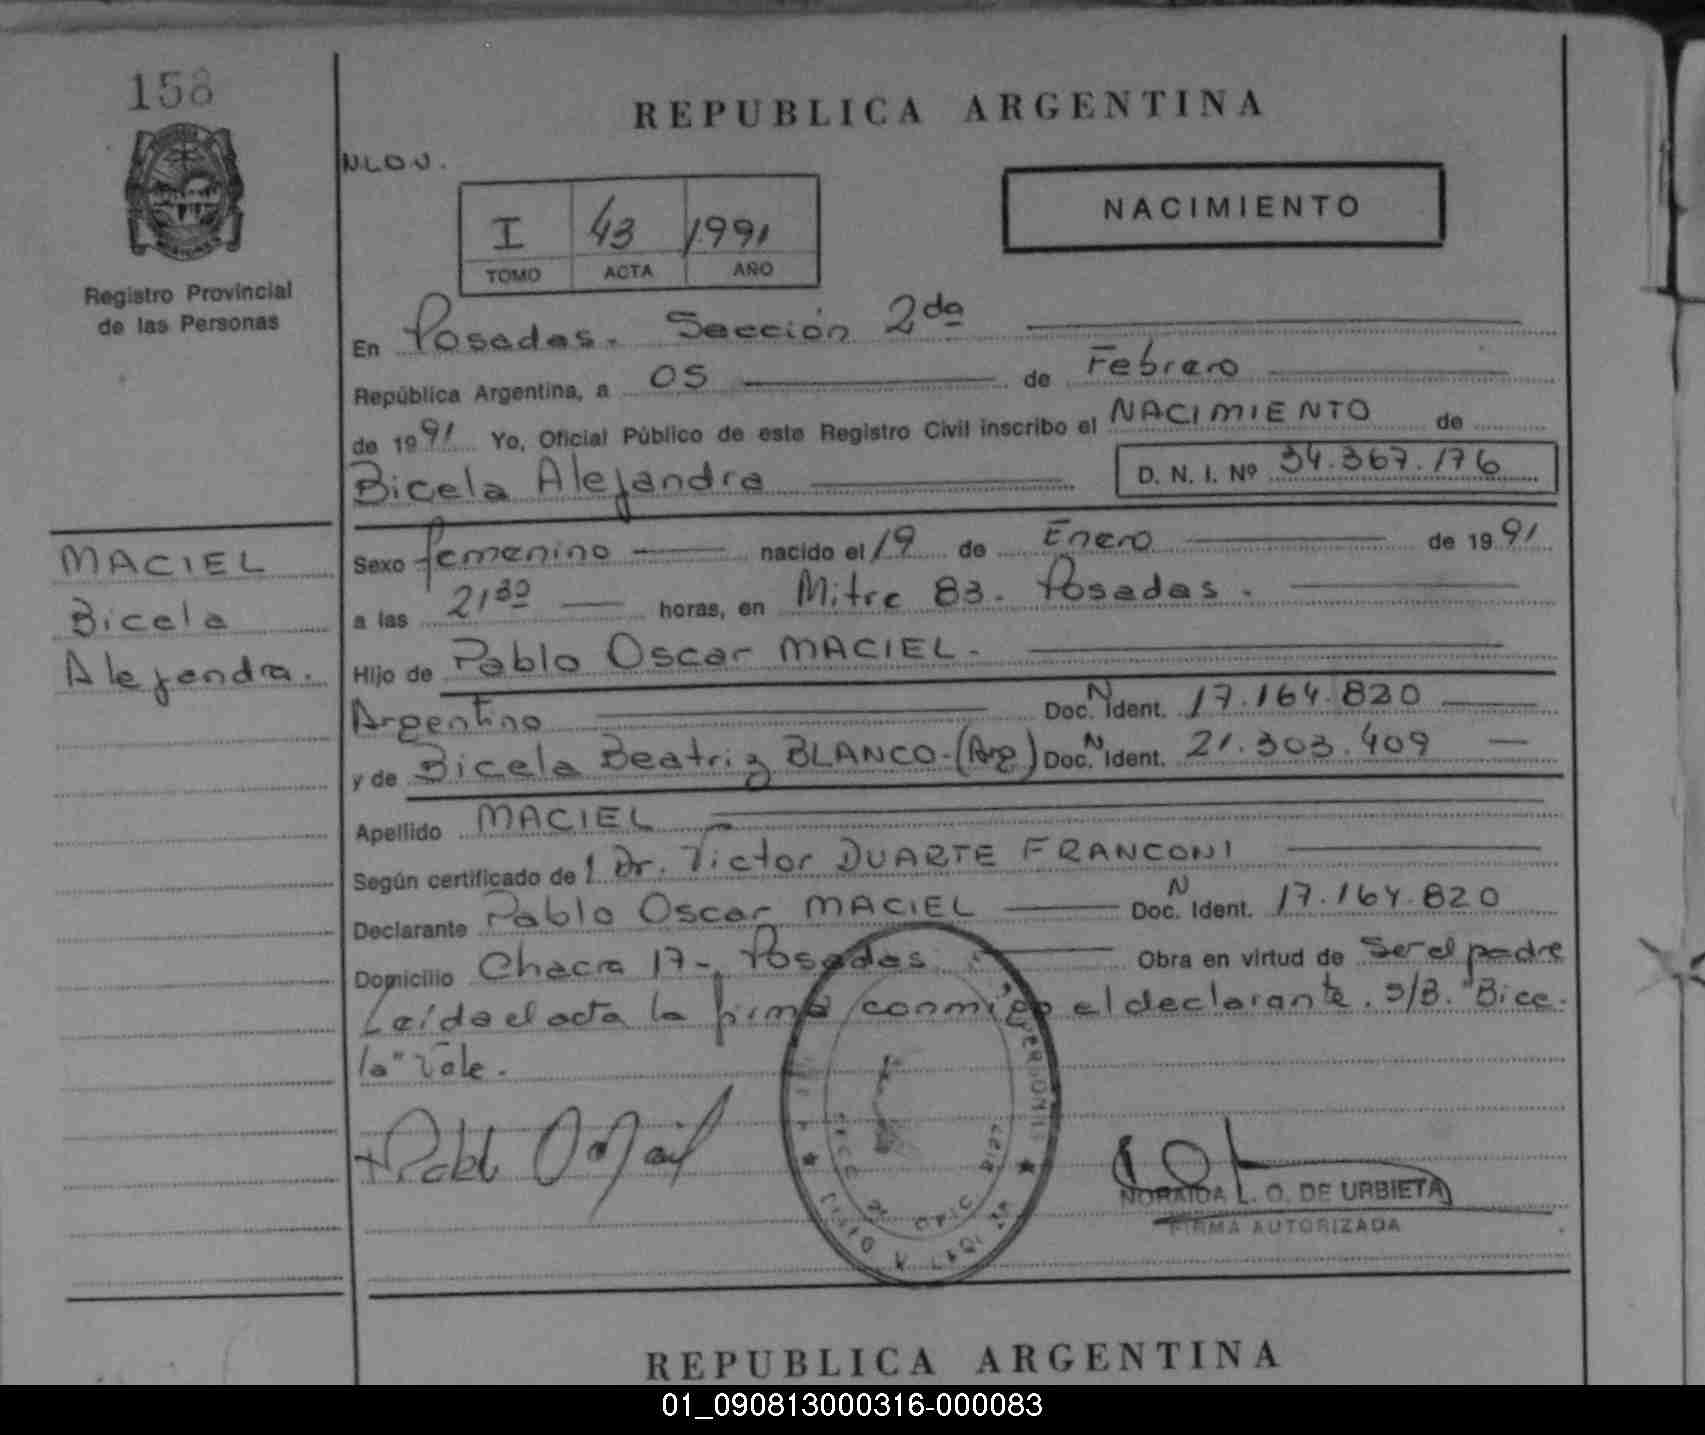 158
Registro Provincial
de las Personas
MACIEL
Bicela
Alejandra.
REPUBLICA ARGENTINA
N.L.O.U.
NACIMIENTO
I 43 1991
TOMO ACTA AÑO
En Posadas. Sección 2da
República Argentina, a 05 de Febrero
de 1991 Yo, Oficial Público de este Registro Civil inscribo el NACIMIENTO de
Bicela Alejandra D. N. I. Nº 34.367.176
Sexo femenino nacido el 19 de Enero de 1991
a las 21 30 horas, en Mitre 83. Posadas.
Hijo de Pablo Oscar MACIEL.
Argentino Doc. N Ident. 17.164.820
y de Bicela Beatriz BLANCO-(Arg) Doc. N Ident. 21.303.409
Apellido MACIEL
Según certificado de l Dr. Victor DUARTE FRANCONI
Declarante Pablo Oscar MACIEL Doc. N Ident. 17.164.820
Domicilio Chacra 17-. Posadas Obra en virtud de Ser el padre
Leída el acta la firma conmigo el declarante. S/B. "Bice-
la" Vale.
NORAIDA L. O. DE URBIETA
FIRMA AUTORIZADA
REPUBLICA ARGENTINA
01_090813000316-000083